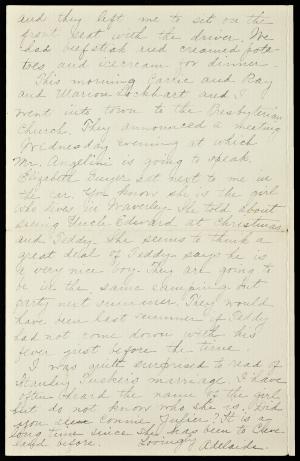 and they left me to set on the
front seat with the driver. We
had beefsteak and creamed pota-
toes and icecream for dinner.
This morning Carrie and Ray
and Marion Lockhart and I
went into town to the Presbyterian
Church. They announced a meeting
Wednesday evening at which
Mr. Angelini is going to speak.
Elizabeth set next to me in
the car. You know she is the girl
who lives in Waverley. She told about
seeing Uncle Edward at Christmas
and Teddy. She seems to think a
great deal of Teddy. says he is
a very nice boy. They are going to
be in the same camping out
party next summer. They would
have been last summer if Teddy
had not come down with his
fever just before the time.
I was quite surprised to read of
Stanley marriage. I have
often heard the name of the girl
but do not know who she is. Did
you see Connie Julier? It is a
long time since she has been to Cleve
land before. Lovingly Adelaide.